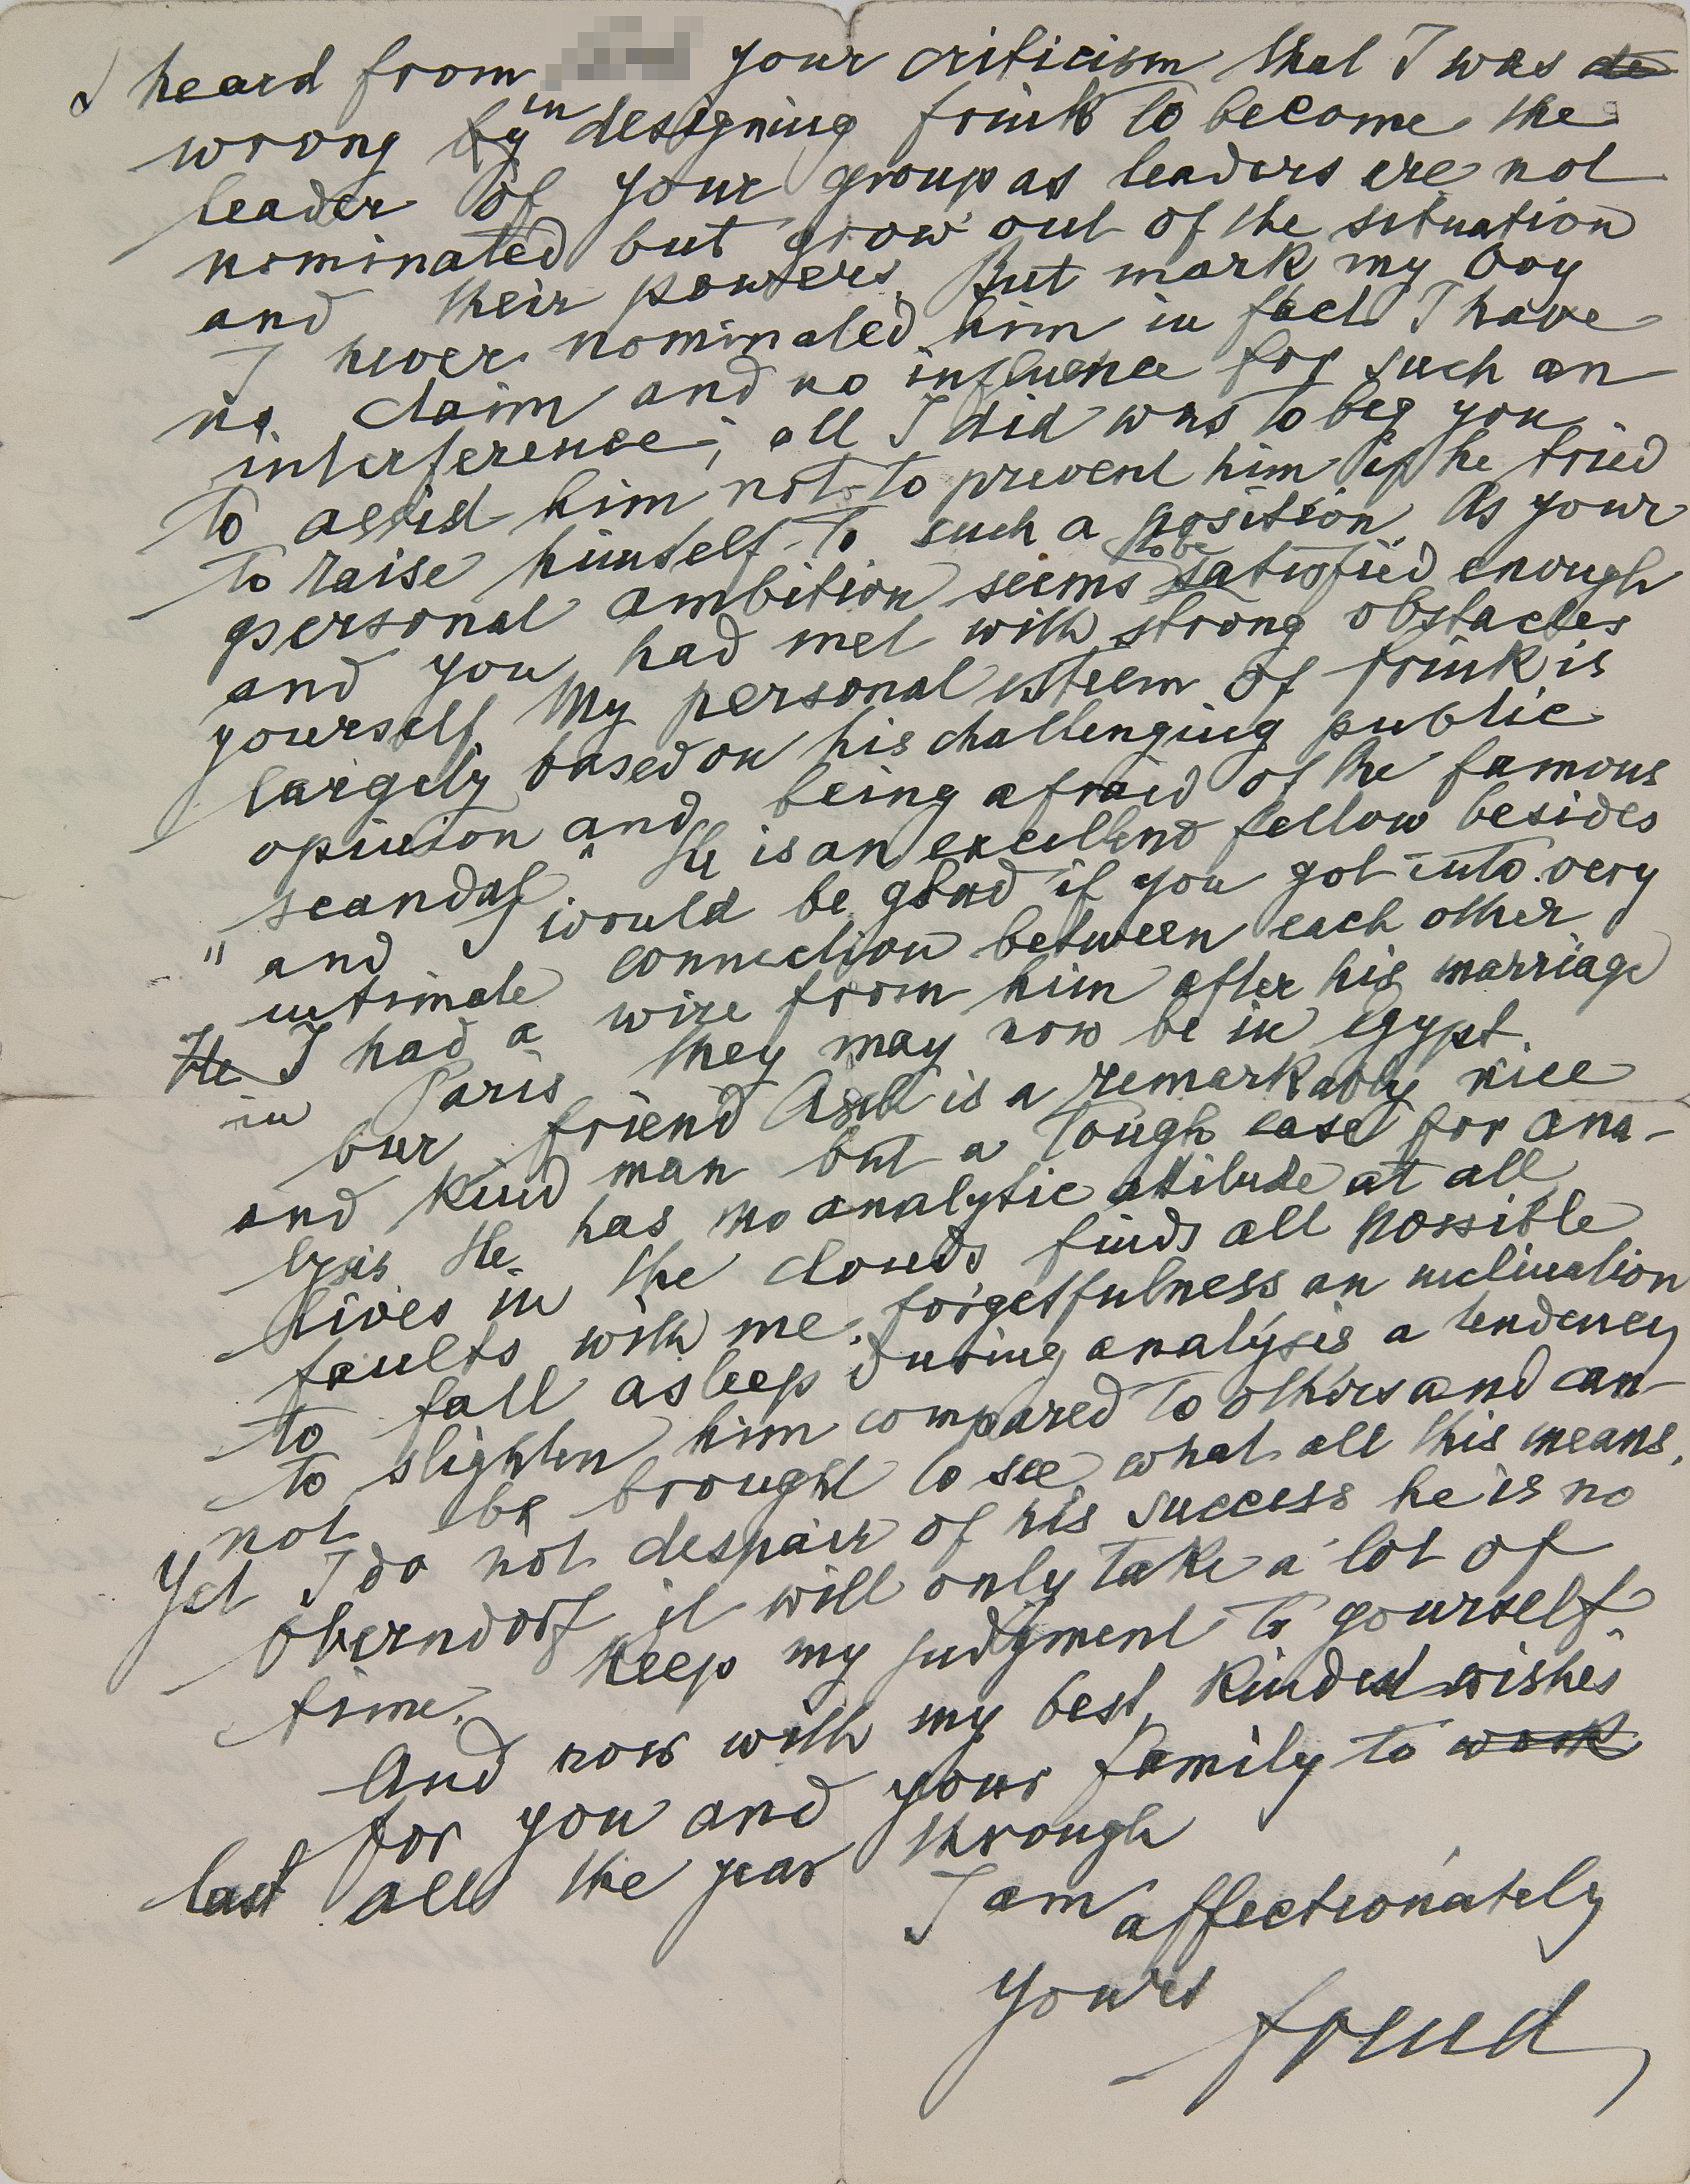 I heard from your criticism that I was de
wrong by in designing Frink to become the
leader of your group as leaders are not
nominated but grow out of the situation
and their powers. But mark my boy
I never nominated him in fact I have
no claim and no influence for such an
interference; all I did was to beg you
to assist him not to prevent him if he tried
to raise himself to such a position. As your
personal ambition seems to be satisfied enough
and you had met with strong obstacles
yourself. My personal esteem of Frink is
largely based on his challenging public
opinion and being afraid of the famous
"scandal" He is an excellent fellow besides
and I would be glad if you got into very
intimate connection between each other
He I had a wire from him after his marriage
in Paris they may now be in Egypt.
Our friend is a remarkably nice
and kind man but a tough case for ana-
lysis. He has no analytic attitude at all
lives in the clouds finds all possible
faults with me, forgetfulness an inclination
to fall asleep during analysis a tendency
to slighten him compared to others and can-
not be brought to see what all this means.
Yet I do not despair of his success he is no
Oberndorf it will only take a lot of
time. Keep my judgment to yourself.
And now with my best, kindest wishes
for you and your family to work
last all the year through
I am affectionately
yours
Freud